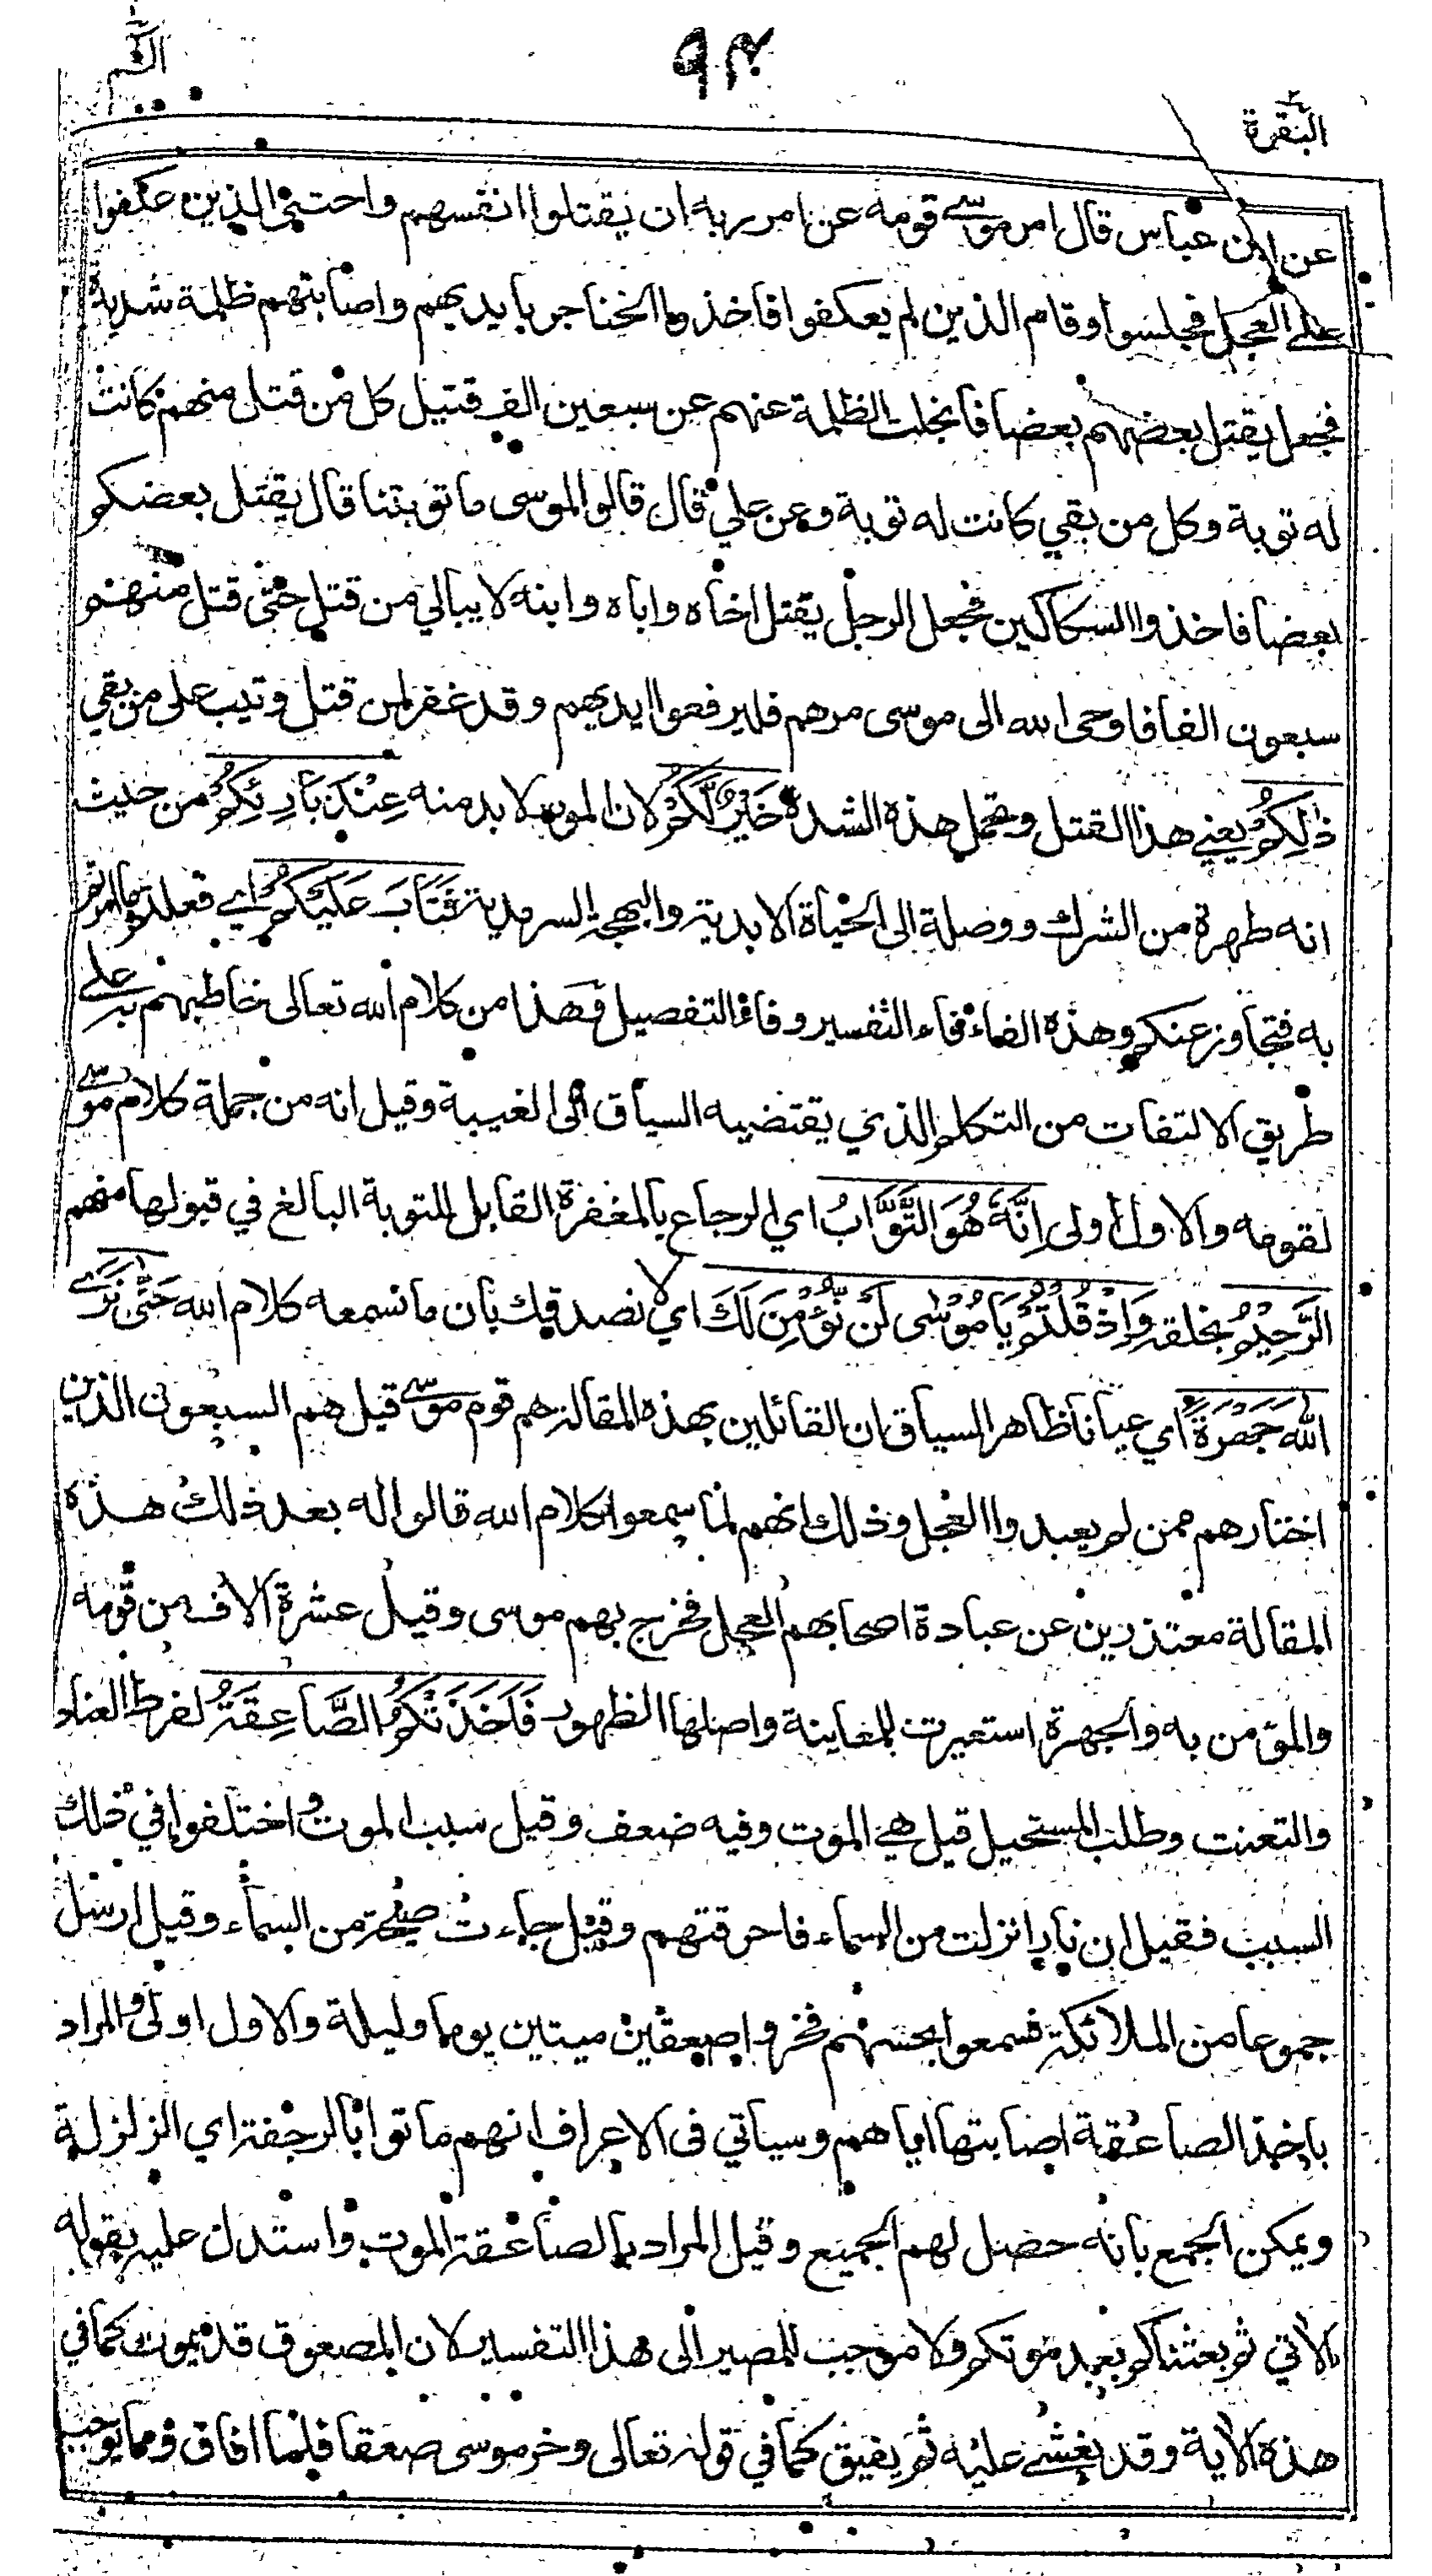 الٓمٓ
٩٣
البقرة
عن ابن عباس قال امر موسى قومه عن امر ربه ان يقتلوا انفسهم واحتبى الذين عكفوا
على العجل فجلسوا وقام الذين لم يعكفوا فاخذوا الخناجر بايديهم واصابتهم ظلمة شديدة
فجعل يقتل بعضهم بعضا فانجلت الظلمة عنهم عن سبعين الف قتيل كل من قتل منهم كانت
له توبة وكل من بقي كانت له توبة وعن علي قال قالوا لموسى ما توبتنا قال يقتل بعضكم
بعضا فاخذوا السكاكين فجعل الرجل يقتل اخاه واباه وابنه لا يبالي من قتل حتى قتل منهم
سبعون الفا فاوحى الله الى موسى مرهم فليرفعوا ايديهم وقد غفر لمن قتل وتيب على من بقي
ذٰلِكُمْ يعني هذا القتل وتحمل هذه الشدة خَيْرٌ لَّكُمْ لان الموت لا بد منه عِنْدَ بَارِئِكُمْ من حيث
انه طهرة من الشرك ووصلة الى الحياة الابدية والبهجة السرمدية فَتَابَ عَلَيْكُمْ اي فعلتم ما امرتم
به فتجاوز عنكم وهذه الفاء فاء التفسير وفاء التفصيل فهذا من كلام الله تعالى خاطبهم به على
طريق الالتفات من التكلم الذي يقتضيه السياق الى الغيبة وقيل انه من جملة كلام موسى
لقومه والاول اولى اِنَّهٗ هُوَ التَّوَّابُ اي الرجاع بالمغفرة القابل للتوبة البالغ في قبولها منهم
الرَّحِيْمُ بخلقه وَاِذْ قُلْتُمْ يَا مُوْسٰى لَنْ نُّؤْمِنَ لَكَ اي لا نصدقك بان ما نسمعه كلام الله حَتّٰى نَرَى
اللّٰهَ جَهْرَةً اي عيانا ظاهر السياق ان القائلين بهذه المقالة هم قوم موسى قيل هم السبعون الذين
اختارهم ممن لم يعبدوا العجل وذلك انهم لما سمعوا كلام الله قالوا له بعد ذلك هذه
المقالة معتذرين عن عبادة اصحابهم العجل فخرج بهم موسى وقيل عشرة الاف من قومه
والمؤمن به والجهرة استعيرت للمعاينة واصلها الظهور فَاَخَذَتْكُمُ الصَّاعِقَةُ لفرط العناد
والتعنت وطلب المستحيل قيل هي الموت وفيه ضعف وقيل سبب الموت واختلفوا في ذلك
السبب فقيل ان نارا نزلت من السماء فاحرقتهم وقيل جاءت صيحة من السماء وقيل ارسل
جموعا من الملائكة فسمعوا بحسهم فخروا صعقين ميتين يوما وليلة والاول اولى والمراد
باخذ الصاعقة اصابتها اياهم وسياتي في الاعراف انهم ماتوا بالرجفة اي الزلزلة
ويمكن الجمع بانه حصل لهم الجميع وقيل المراد بالصاعقة الموت واستدل عليه بقوله
الاتي ثم بعثناكم بعد موتكم ولا موجب للمصير الى هذا التفسير لان المصعوق قد يموت كما في
هذه الاية وقد يغشى عليه ثم يفيق كما في قوله تعالى وخر موسى صعقا فلما افاق ومما يوجب